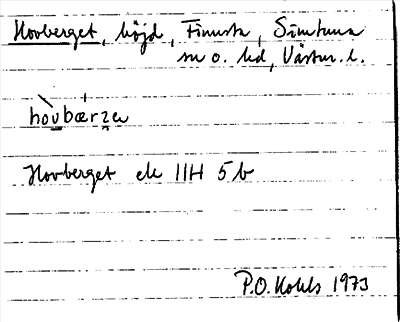 Hovberget, höjd, Finnsta, Simtuna
sn o. hd, Västm. l.
hovbærzeɩ
Hovberget ek 11H 5b
P.O. Kohls 1973